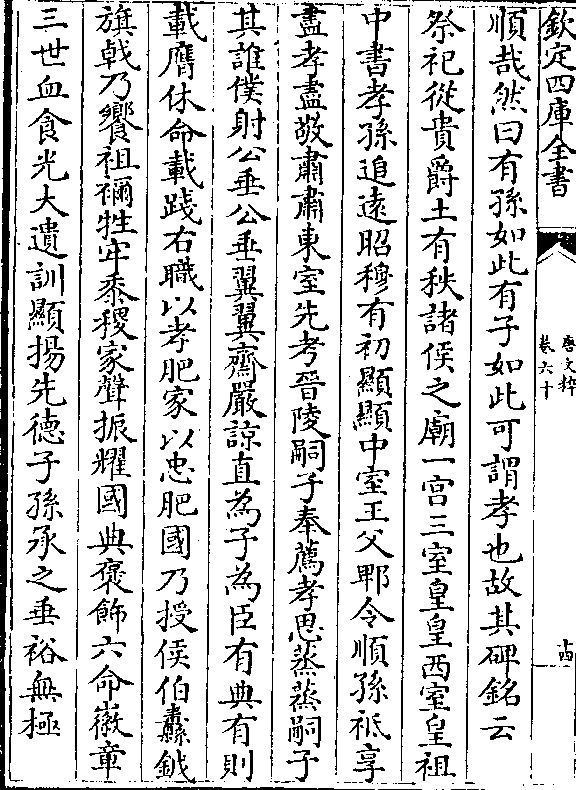 欽定四庫全書
唐文粹
卷六十
十四
順哉然曰有孫如此有子如此可謂孝也故其碑銘云
祭祀從貴爵土有秩諸侯之廟一宫三室皇皇西室皇祖
中書孝孫追逺昭穆有初顯顯中室王父鄲令順孫祇享
盡孝盡敬肅肅東室先考晉陵嗣子奉薦孝思蒸蒸嗣子
其誰僕射公垂公垂翼翼齋嚴諒直為子為臣有典有則
載膺休命載踐右職以孝肥家以忠肥國乃授侯伯纛鉞
旗戟乃饗祖禰牲牢黍稷家聲振耀國典褒飾六命徽章
三世血食光大遺訓顯揚先德子孫承之垂裕無極